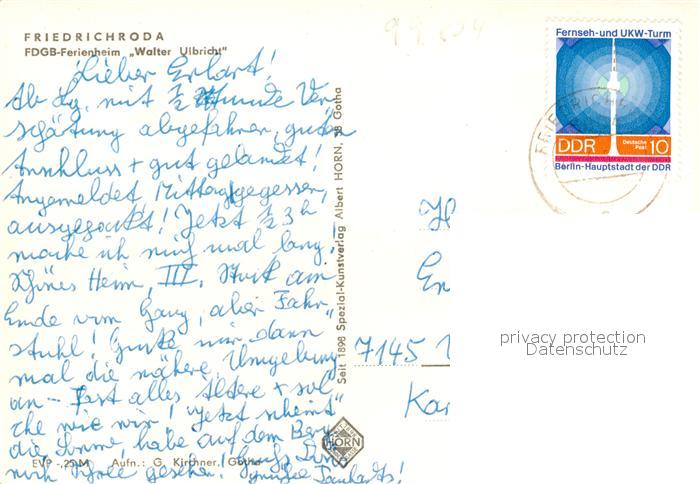 FRIEDRICHRODA
FDGB-Ferienheim „Walter Ulbricht"
Lieber Erhart!
Ab Lg. mit ½ Stunde Ver
spätung abgefahren, guten
Anschluss + gut gelandet!
Angemeldet, Mittaggegessen,
ausgepackt! Jetzt ½ 3 h
mache ich mich mal lang!
Schönes Heim, III. Stock am
Ende vom Gang, aber Fahr„
stuhl! Gucke mir dann
mal die nähere Umgebung
an - Fast alles ältere + sol„
che wie wir! Jetzt scheint
die Sonne, habe auf dem Berg
noch gesehen! Gruß
Seit 1898 Spezial-Kunstverlag Albert HORN, 58 Gotha
HORN
EVP -,25 M Aufn.: G. Kirchner, Gotha
Fernseh- und UKW-Turm
DDR Deutsche Post 10
Berlin-Hauptstadt der DDR
FRIEDRICHR
7145
Kar
privacy protection
Datenschutz